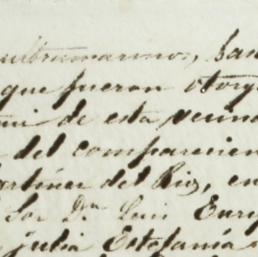 ultramarinos, San
que fueron otorg
mi de esta vecind
del comparecien
artinez del Rio, en
Sor Dn Luis Enri
julia Estefanía